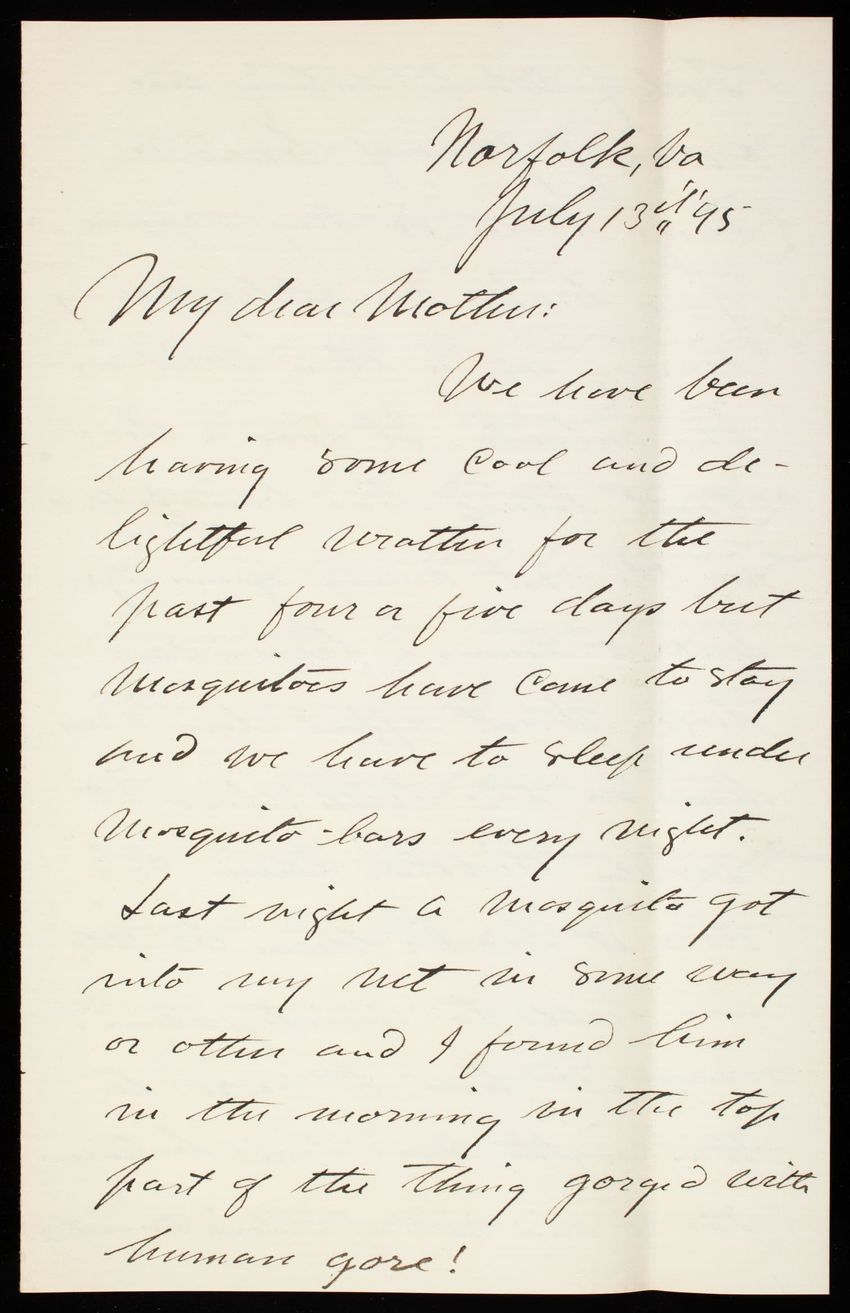 Norfolk, Va
July 13th '95
My dear Mother:
We have been
having some cool and de-
lightful weather for the
past four or five days but
mosquitoes have come to stay
and we have to sleep under
mosquito-bars every night.
Last night a mosquito got
into my net in some way
or other and I found him
in the morning in the top
part of the thing gorged with
human gore!